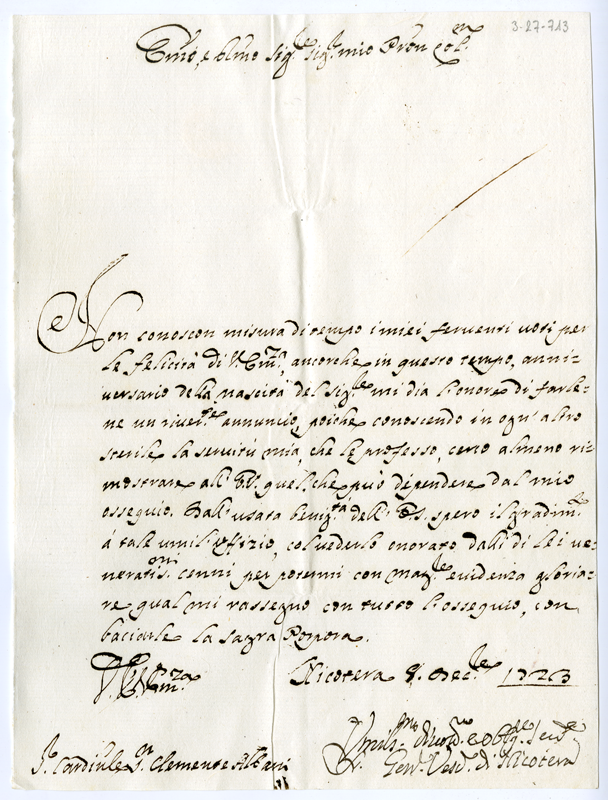 3-27-713
Em̃o, e Rmo Sig.re Sig.r mio Pron Col.mo
Non conoscon misura di tempo i miei ferventi voti per
le felicità di V. Em.za, ancorche in questo tempo, anni-
versario della nascità del Sig.re mi dia l'onore di farle-
ne un river.te annuncio, poiche conoscendo in ogn'altro
sterile la servitù mia, che le professo, cerco almeno ri-
mostrare all'E.V. quel, che può dependere dal mio
osseguio. Dall'usata benig.tà dell'E.V. spero il gradim.to
à tale umil'ufizio, col vederlo onorato dalli di lei ve-
neratis.mi cenni per potermi con mag.re evidenza gloria-
re qual mi rassegno con tutto l'osseguio, con
baciarle la sagra Porpora.
V. Em.za Nicotera 8. Dec.re 1723
Umilis.mo Divotis.mo e Oblig.mo Ser.re
S.r Cardinle S.n Clemente Albani
Vesc.o di Nicotera